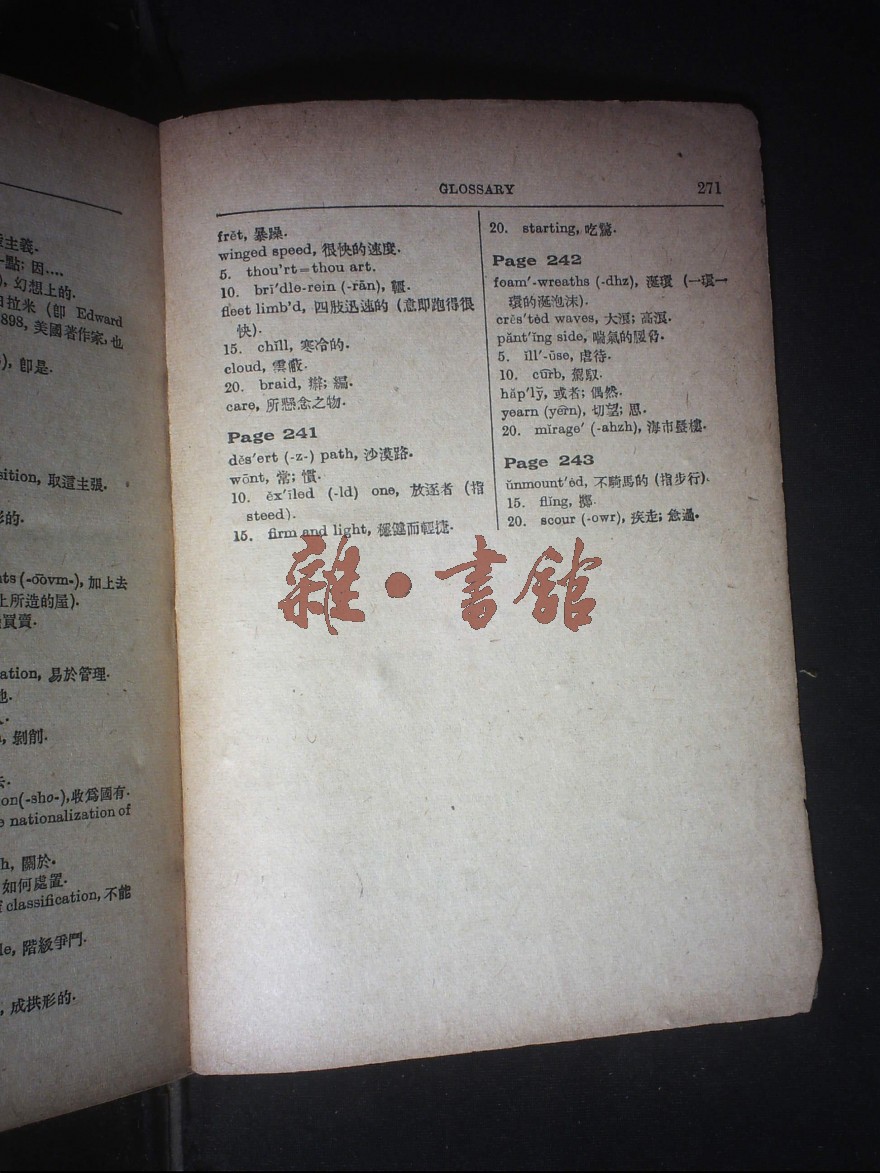 主義.
一點; 因....
), 幻想上的.
拉米 (卽 Edward
1898, 美國著作家, 也
), 卽是.
sition, 取這主張.
形的.
ts (-ōōvm-), 加上去
上所造的屋).
買賣.
ation, 易於管理.
他.
, 剝削.
去.
on(-sho-), 收爲國有.
e nationalization of
h, 關於.
如何處置.
classification, 不能
le, 階級爭鬥.
, 成拱形的.
GLOSSARY 271
frĕt, 暴躁.
winged speed, 很快的速度.
5. thou'rt = thou art.
10. brī'dle-rein (-rān), 韁.
fleet limb'd, 四肢迅速的 (意即跑得很
快).
15. chĭll, 寒冷的.
cloud, 雲蔽.
20. braid, 辮; 編.
care, 所懸念之物.
Page 241
dĕs'ert (-z-) path, 沙漠路.
wŏnt, 常; 慣.
10. ĕx'īled (-ld) one, 放逐者 (指
steed).
15. firm and light, 穩健而輕捷.
20. starting, 吃驚.
Page 242
foam'-wreaths (-dhz), 涎環 (一環一
環的涎泡沫).
crĕs'tĕd waves, 大浪; 高浪.
pănt'ĭng side, 喘氣的
5. ĭll'-ūse, 虐待.
10. cûrb, 駕馭.
hăp'lў, 或者; 偶然.
yearn (yẽrn), 切望; 思.
20. mĭrage' (-ahzh), 海市蜃樓.
Page 243
ŭnmount'ĕd, 不騎馬的 (指步行).
15. flĭng, 擲.
20. scour (-owr), 疾走; 急過.
雜·書館